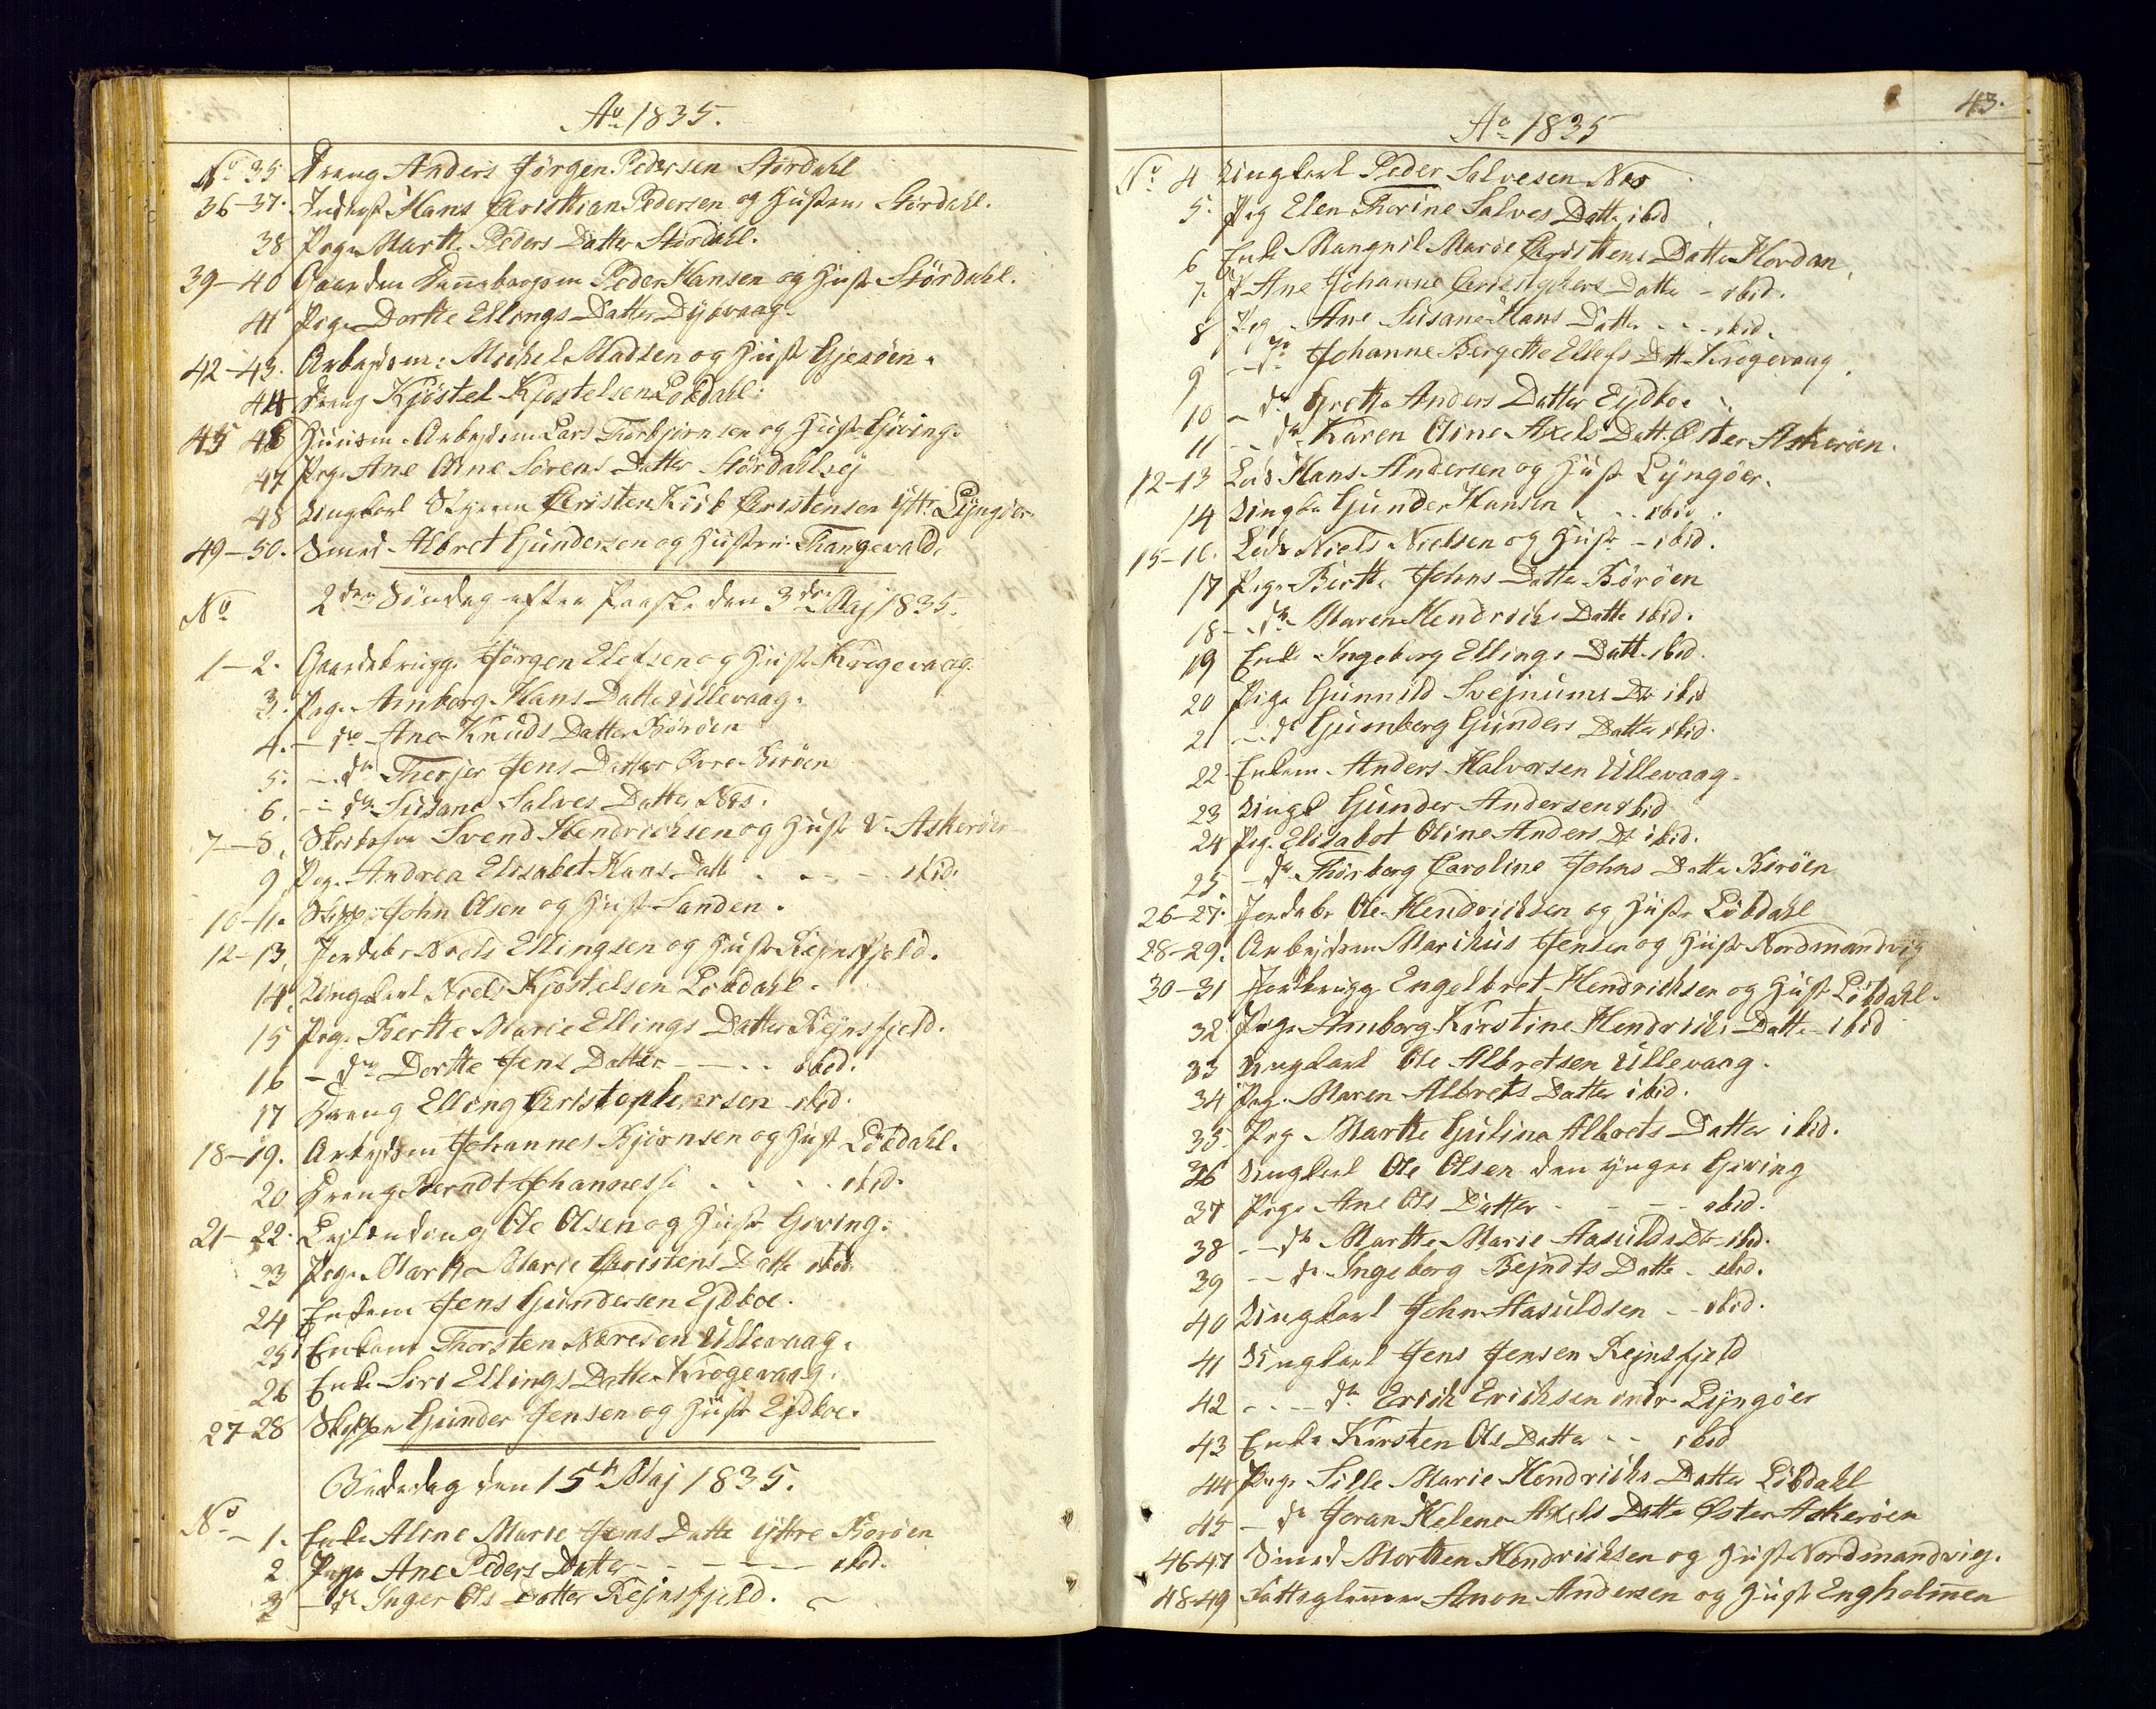 Ao 1835.
No 35 Dreng Anders Jörgen Pedersen Stördahl
36-37. Inderst Hans Christhian Pedersen og Hustrue Stördahl.
38 Pige Marth. Peders Datter Stördahl.
39-40 Peder Hansen og Hustr Stördahl.
41 Pige Dorthe Ellings Datter Dybvaag.
42-43. Arbejdsm: Michel Madsen og Hustr Gjesöen.
44 Dreng Kjöstel Kjostelsen Löbdahl.
45 46 Huusm. Arbejdsm Lars Thorbjornsen og Hustr Giving.
47 Pige Ane Oline Sörens Datter Stördahlsej
48 Ungkarl Christen Kiib Christensen Ytt. Lÿngöer
49-50. Smed Albret Gundersen og Hustrue Thangevald.
No 2den Söndag efter Paaske den 3die Maj 1835.
1-2. Gaardbrugg. Jörgen Elefsen og Hustr Krogevaag
3. Pige Amborg Hans Datter Ullevaag.
4. - do Ane Knuds Datter Böröen
5. - do Therjer Jens Datter Övre Böröen
6. - do Susane Salves Datter Nes.
7-8. Svend Hendrichsen og Hustr V. Askeröen
9 Pige Andrea Elisabet Hans Datt - - - ibid.
10-11. Skipp: John Olsen og Hustr Sanden.
12-13. Jordbr Niels Ellingsen og Hustr Rejnsfjeld.
14. Ungkarl Niels Kjostelsen Löbdahl.
15 Pige Berthe Marie Ellings Datter Rejnsfjeld.
16 - do Dorthe Jens Datter - - - ibid.
17 Dreng Elling Christophersen ibid.
18-19. Arbejdsm Johannes Björnsen og Hust Löbdahl.
20 Dreng Berndt Johanness. - - - ibid.
21-22. Lejlænding Ole Olsen og Hustr Giving.
23 Pige Marthe Marie Christens Datte ibid.
24 Enkem Jens Gundersen Ejdboe.
25 Enkem Thorsten Noresen Ullevaag.
26 Enke Siri Ellings Datter Krogevaag.
27-28 Skipper Gunder Jensen og Hustr Eidboe.
Bededag den 15de Maj 1835.
No - 1. Enke Aline Marie Jens Datte Ÿttre Böröen
2. Pige Ane Peders Datter - - - - ibid.
3 - do Inger Ols Datter Rejnsfjeld.
43.
Ao 1835
No 4 Ungkarl Peder Salvesen Nes
5. Pig Elen Thorine Salves Datte ibid
6 Enke Mangnil Marie Christhens Datte Hordan.
7. P Ane Johanne Christophers Datte - ibid.
8 Pig Ane Susane Hans Datte - - ibid.
9 - do Johanne Bergethe Ellefs Dtt Krogevaag.
10 - do Grethe Anders Datter Eÿdboe
11 - do Karen Oline Axels Datt. Öster Askeröen.
12-13 Lods Hans Andersen og Hustr Lÿngöer.
14 Ungka Gunder Hansen - - ibid.
15-16. Lods Niels Nielsen og Hustr - ibid.
17 Pige Birthe Johns Datte Böröen
18 - do Maren Hendrichs Datte ibid.
19 Enke Ingeborg Ellings Datt. ibid.
20 Pige Gunnild Svejnums Dtr ibid
21 - do Gumberg Gunders Datter ibid.
22. Enkem Anders Halvorsen Ullevaag.
23 Ungk Gunder Andersen ibid
24 Pig. Elisabet Oline Anders Dtr ibid.
25. - do Thorborg Caroline Johns Datte Böröen
26-27. Jordebr Ole Hendrichsen og Hustr Löbdahl
28-29. Arbejdsm Marihus Jensen og Hustr Nordmandvig
30-31 Jordbrugg Engelbret Hendrichsen og Hustr Löbdahl.
32. Pige Amborg Kirstine Hendrichs Datte - ibid
33 Ungkarl Ole Albretsen Ullevaag.
34 Pige Maren Albrets Datter ibid.
35. Pig Marthe Gulina Albrets Datter ibid.
36 Ungkarl Ole Olsen den ÿngre Giving
37 Pige Ane Ols Datter - - - ibid.
38 - do Marthe Marie Aasulds Dtr ibid.
39 - do Ingeborg Bejndts Datte - ibid.
40 Ungkarl John Aasuldsen - ibid.
41 Ungkarl Jens Jensen Rejnsfjeld
42 - - do Erich Erichsen indr Lÿngöer
43 Enke Kirsten Ols Datter - - ibid
44 Pige Sille Marie Hendrichs Datter Löbdahl
45 - do Joran Helene Axels Datte Öster Askeröen
46-47 Smed Morthen Hendrichsen og Hustr Nordmandvig.
48-49 Anon Andersen og Hustr Engholmen